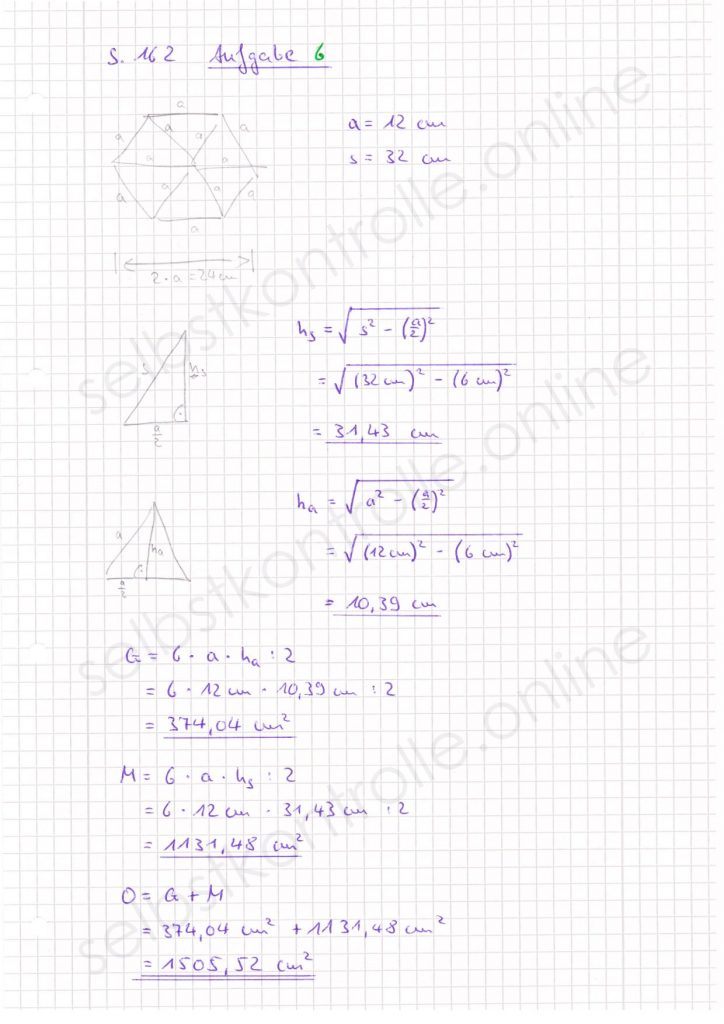 S. 162 Aufgabe 6
a
a a a a
a a
a a a a
a
2 · a = 24 cm
a = 12 cm
s = 32 cm
s hs
a/2
hs = √(s² − (a/2)²)
= √((32 cm)² − (6 cm)²)
= 31,43 cm
a ha
a/2
ha = √(a² − (a/2)²)
= √((12 cm)² − (6 cm)²)
= 10,39 cm
G = 6 · a · ha : 2
= 6 · 12 cm · 10,39 cm : 2
= 374,04 cm²
M = 6 · a · hs : 2
= 6 · 12 cm · 31,43 cm : 2
= 1131,48 cm²
O = G + M
= 374,04 cm² + 1131,48 cm²
= 1505,52 cm²
selbstkontrolle.online
selbstkontrolle.online